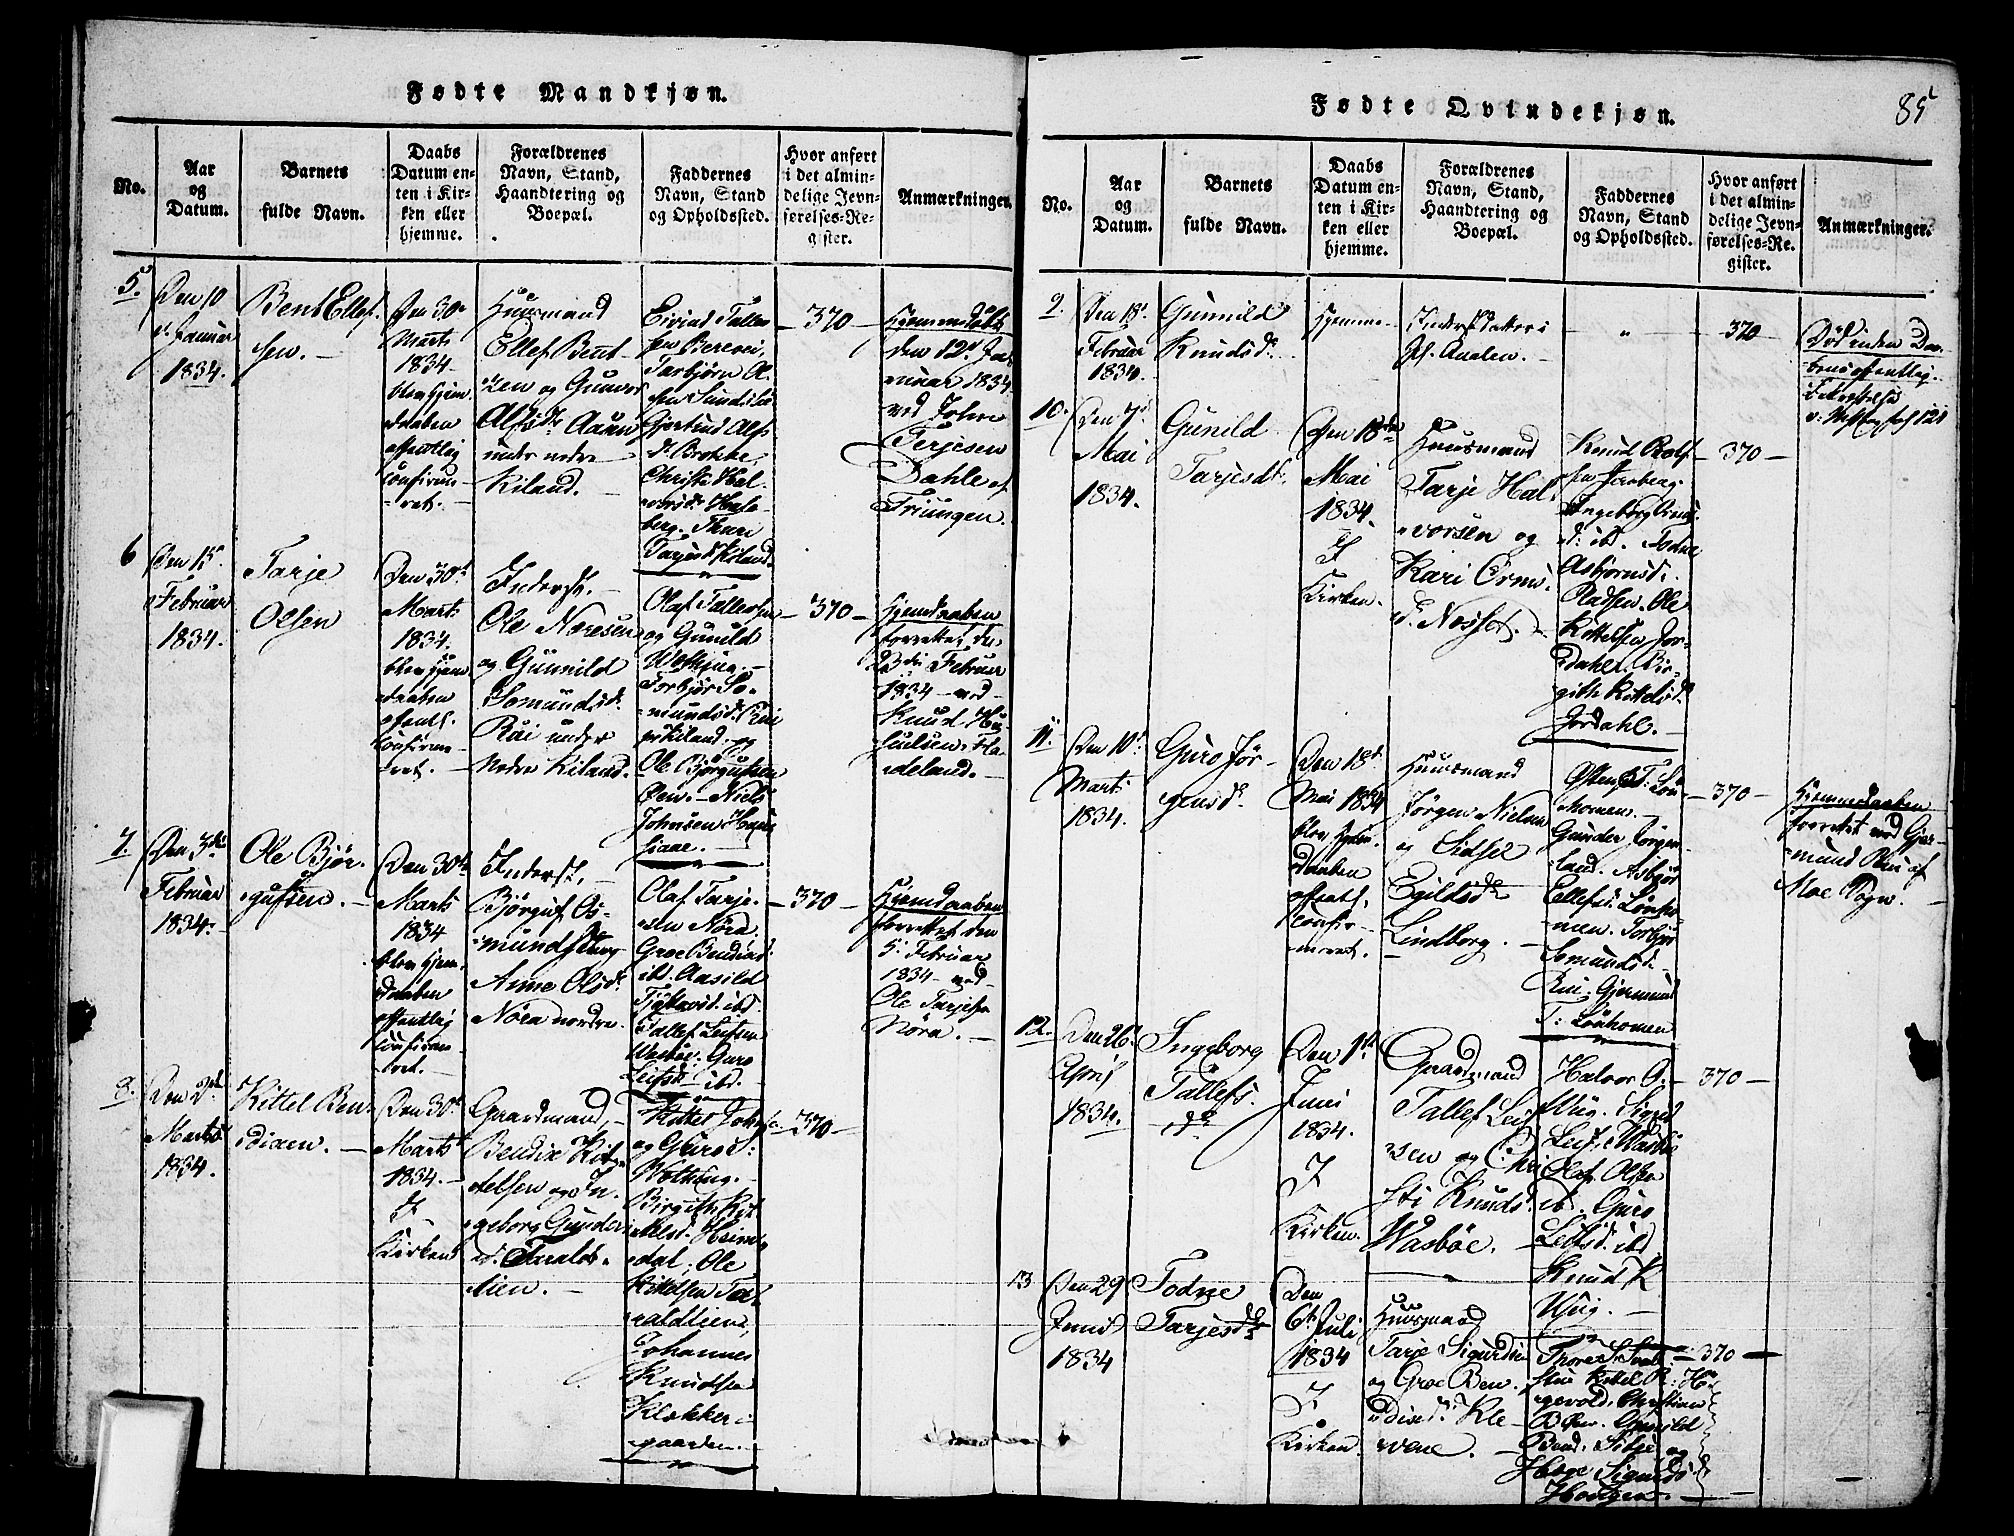 Fødte Mandkjøn.
No.
Aar
og
Datum.
Barnets
fulde Navn.
Daabs
Datum en-
ten i Kir-
ken eller
hjemme.
Forældrenes
Navn, Stand,
Haandtering og
Boepæl.
Faddernes
Navn, Stand
og Opholdssted.
Hvor anført
i det almin-
delige Jevn-
førelses-Re-
gister.
Anmærkninger.
5.
Den 10
Januar
1834.
Bent Ellef-
sen.
Den 30te
Marts
1834
blev hjem-
daaben
offentlig
confirme-
ret.
Huusmand
Ellef Bent-
sen og Gunvor
Alfsdr Aaen
under nedre
Kiland.
Eivind Tallev-
sen
Tarbjørn O.
Gjertrud Alfs-
dr. Brokke,
Christi Hal-
vorsdr
berg. Thore
Tarjesdr Kiland.
370
Hjemmedøbt
den 12te Ja-
nuar 1834
ved John
Terjesen
Dahle af
Triungen.
6
Den 15de
Februar
1834.
Tarje
Olsen
Den 30te
Marts
1834.
blev hjem-
daaben
offentl.
confirme-
ret.
Inderst.
Ole Næresen
og Gunnild
Somundsd.
Rui under
Nedre Kiland.
Olaf Tallevsen
og Gunild
Torbjør So-
mundsd. Rui
Kiland og
Ole Bjørgufsen
Øen. Niels
Johnsen
370
Hjemdaaben
forrettet den
23de Februar
1834 ved
Knud
deland.
7.
Den 3die
Februar
1834.
Ole Bjør-
gufsen.
Den 30te
Marts
1834
blev hjem-
daaben
offentlig
confirme-
ret.
Inderst.
Bjørguf Os-
mundsen og
Anne Olsdr
Nora nordre.
Olaf Tarje-
sen Nora.
Groe Bendixd.
ibd. Aasild
ibd.
Tallef Leifsen
Wasbøe. Guro
Leifsdr ibd.
370
Hjemdaaben
forrettet den
5. Februar
1834 ved
Ole Tarjesen
Nora.
8.
Den 2den
Marts
1834.
Kittel Ben-
dixen.
Den 30te
Marts
1834.
I
Kirken
Gaardmand,
Bendix Kit-
telsen og In-
geborg Gunder
d. Taralds-
lien.
Kittel Johns.
og Guro
Birgith Kit-
telsd. Heim-
dal, Ole
Kittelsen Tar-
aldlien,
Johannes
Knudsen
Klokker-
gaarden.
370
Fødte Qvindekjøn.
85
No.
Aar
og
Datum.
Barnets
fulde Navn.
Daabs
Datum en-
ten i Kir-
ken eller
hjemme.
Forældrenes
Navn, Stand,
Haandtering og
Boepæl.
Faddernes
Navn, Stand
og Opholdssted.
Hvor anført
i det almin-
delige Jevn-
førelses-Re-
gister.
Anmærkninger.
9.
Den 18de
Februar
1834.
Gunnild
Knudsdr.
Hjemme
370
Død inden Daa-
bens offentlig
Bekræftelse
10.
Den 7de
Mai
1834.
Gunild
Tarjesdr.
Den 18de
Mai
1834.
I
Kirken.
Huusmand
Tarje Hal-
vorsen og
Kari Orms-
d.
Knud Rolf-
sen
Ingeborg
d. ibd. Todne
Asbjørnsd.
Pladsen. Ole
Kittelsen Jor-
dahl. Bir-
githe Kittelsdr
Jordahl.
370
11.
Den 10de
Marts
1834.
Guro Jør-
gensdr
Den 18de
Mai 1834
blev hjem-
daaben
offentl.
confir-
meret.
Huusmand
Jørgen Nielsen
og Sidsel
Egildsdr
Lindborg.
Østen T. Løn-
homen.
Gunder Jørgen-
land. Asbjør
Ellefsd. Lønho-
men. Torbjør
Somundsd.
Rui. Gjermund
T. Lønhomen
370
Hjemmedaaben
forrettet ved Gjer-
mund Rui af
Moe Sogn.
12.
Den 26de
April
1834.
Ingeborg
Tallefs-
dr
Den 1ste
Juni
1834.
I
Kirken.
Gaardmand
Tallef Leif-
sen og Chri-
sti Knudsd.
Wasbøe.
Halvor O.
Uug. Sigrid
Leifs. Wasbøe
Olaf Olsen
ib. Guro
Leifsd. ibd
Knud K.
Uug.
370
13
Den 29
Juni
1834
Todne
Tarjesdr
Den
6te Juli
1834
I
Kirken.
Huusmand
Tarje Sigurdsen
og Groe Ben-
dixd. Kle-
vene.
Thore
Kittel R.
Christian
Øen. Gunild
Bend.
og
Sigurds
370